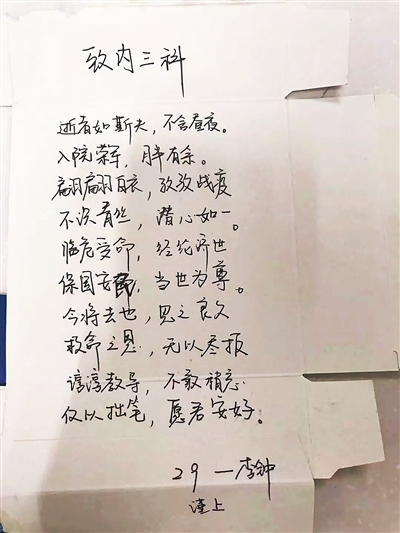 致内三科
逝者如斯夫，不舍昼夜。
入院荣军，月半有余。
翩翩白衣，孜孜战疫
不次青丝，潜心如一。
临危受命，经纶济世
保国安民，当世为尊。
今将去也，思之良久
救命之恩，无以尽报
谆谆教导，不敢稍忘
仅以拙笔，愿君安好。
29 — 李钟
谨上